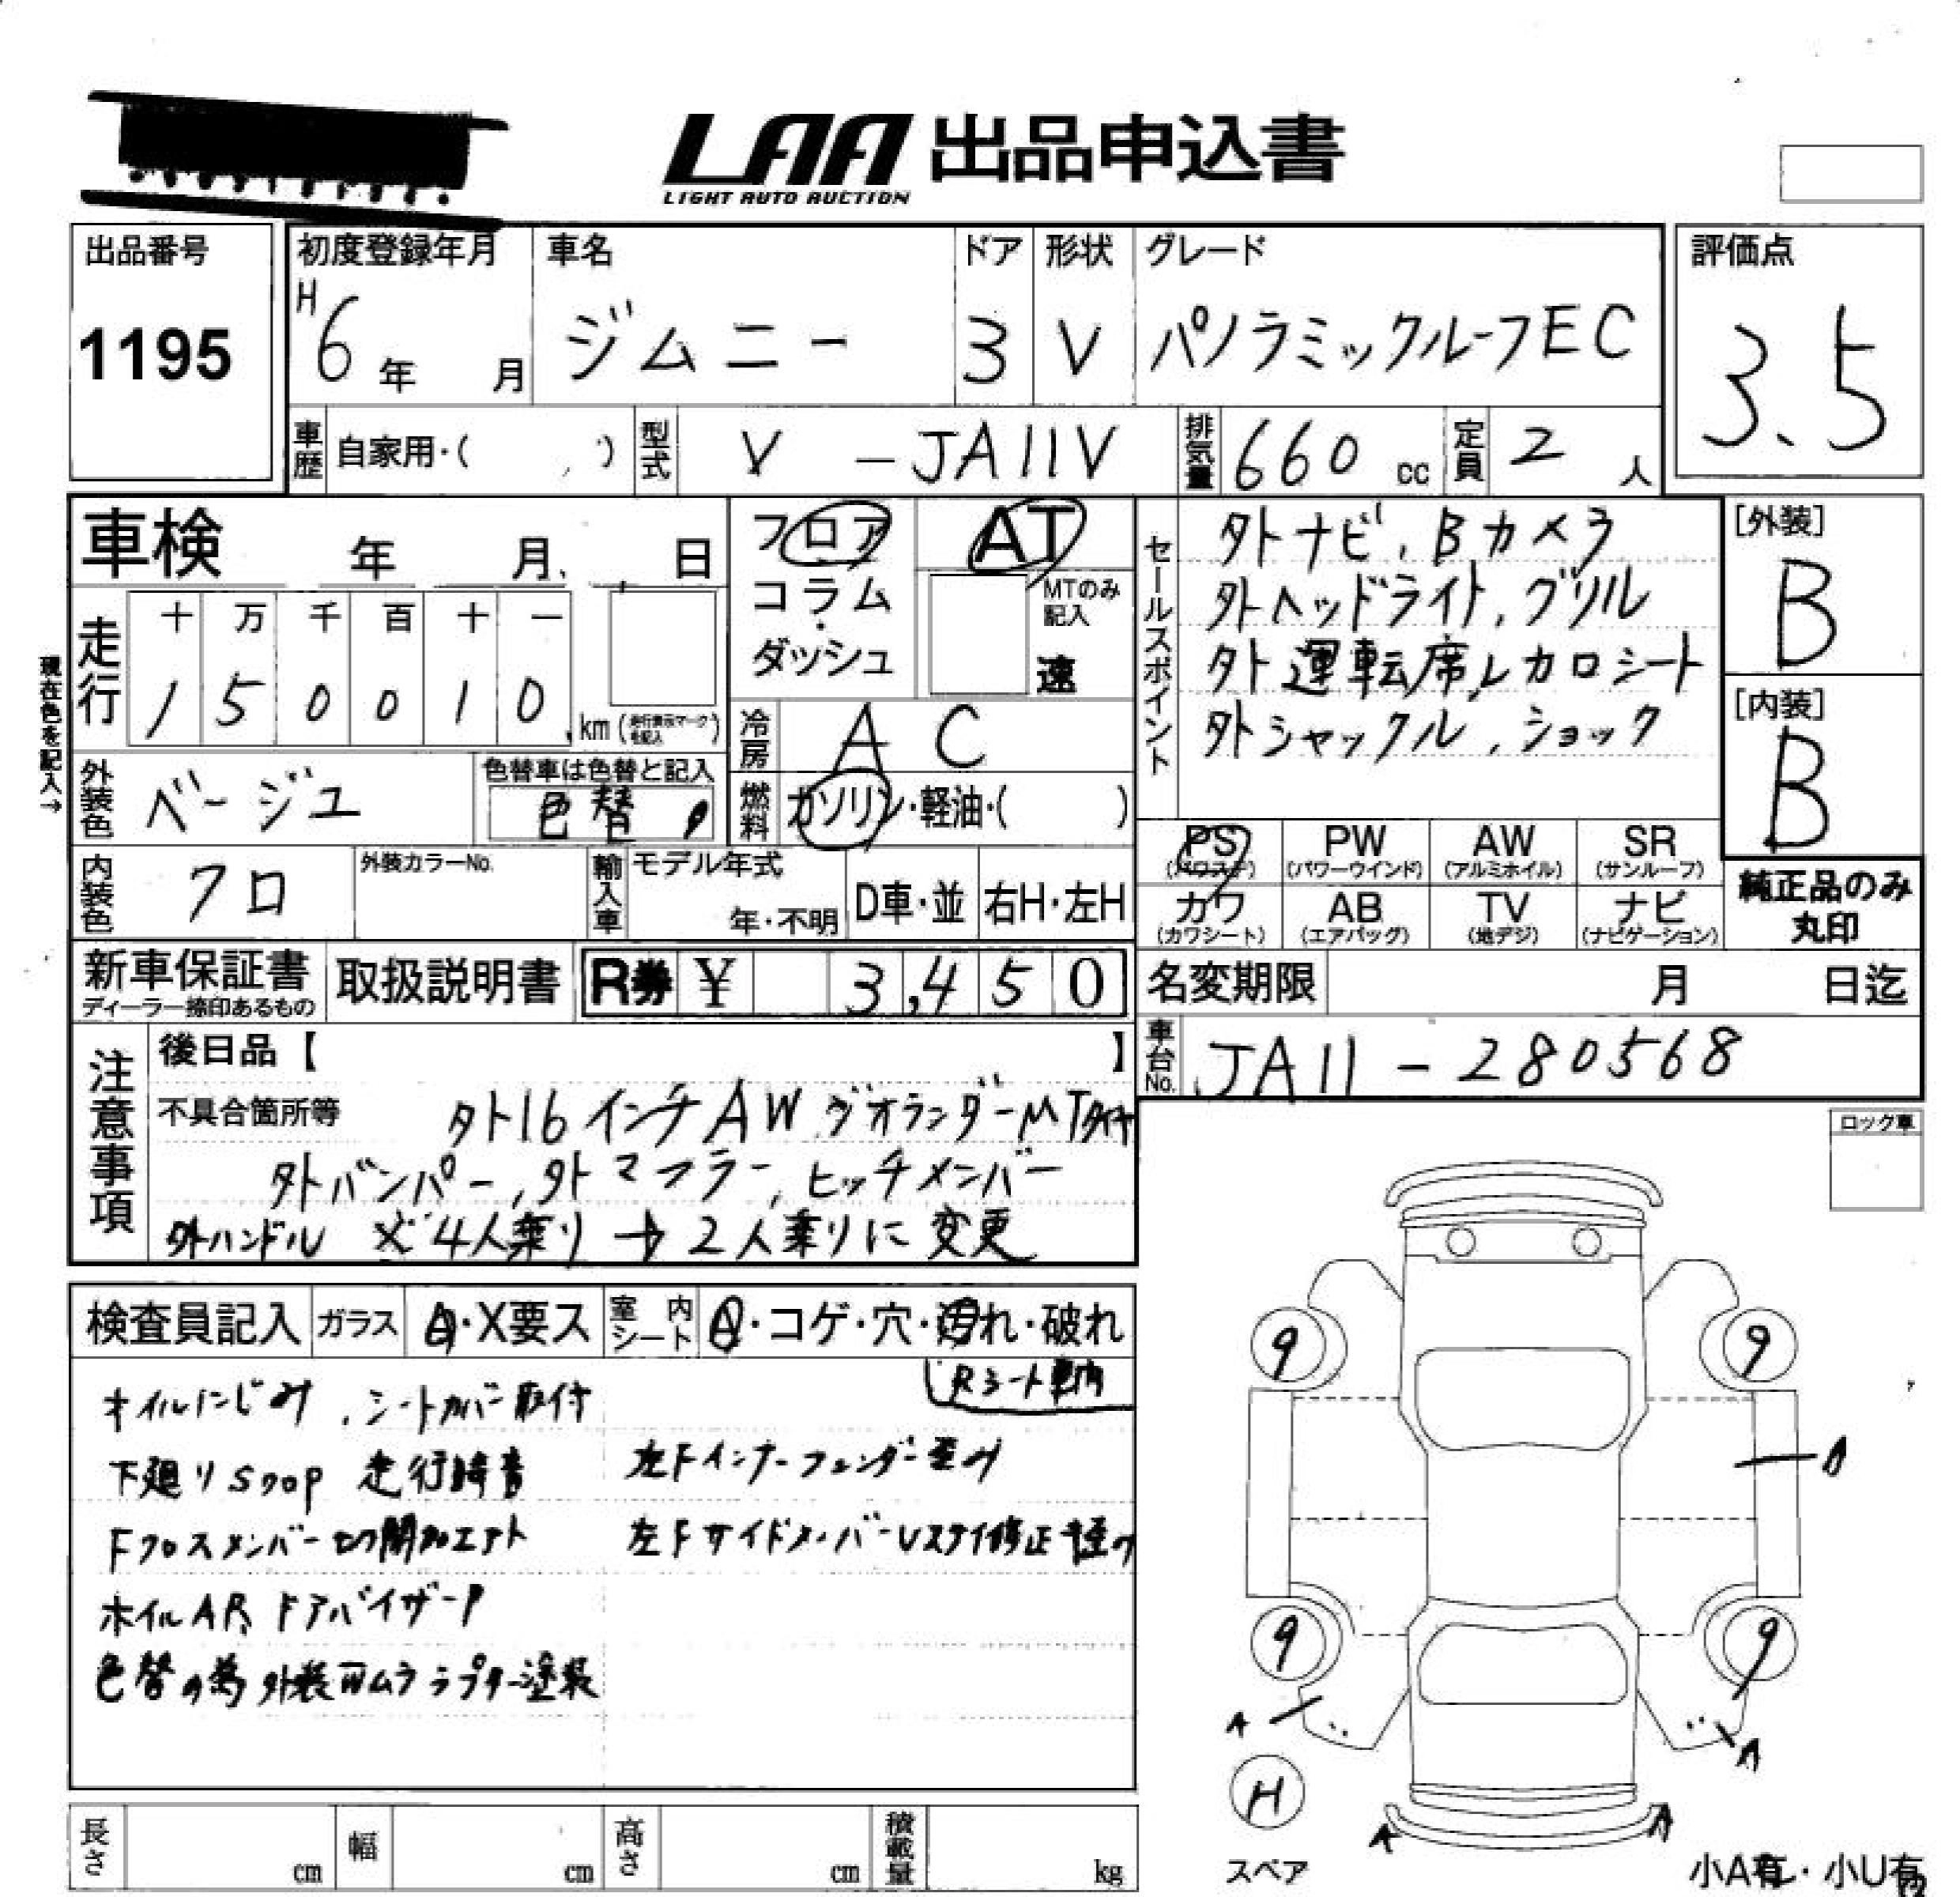 LAA 出品申込書
LIGHT AUTO AUCTION
出品番号
1195
初度登録年月
H6年 月
車名
ジムニー
ドア
3
形状
V
グレード
パノラミックルーフEC
評価点
3.5
車歴 自家用・( )
型式 V-JA11V
排気量 660 cc
定員 2 人
車検 年 月 日
フロア
コラム・
ダッシュ
AT
MTのみ
記入
速
現在色を記入→
走行
十 万 千 百 十 一
1 5 0 0 1 0 km (走行表示マークを記入)
冷房 AC
燃料 ガソリン・軽油・( )
外装色 ベージュ
色替車は色替と記入
色替
内装色 クロ
外装カラーNo.
輸入車 モデル年式
年・不明
D車・並 右H・左H
新車保証書
ディーラー捺印あるもの
取扱説明書
R券 ¥ 3,450
セールスポイント
外ナビ、Bカメラ
外ヘッドライト、グリル
外運転席レカロシート
外シャックル、ショック
[外装]
B
[内装]
B
PS (パワステ)
PW (パワーウインド)
AW (アルミホイル)
SR (サンルーフ)
カワ (カワシート)
AB (エアバッグ)
TV (地デジ)
ナビ (ナビゲーション)
純正品のみ
丸印
名変期限 月 日迄
車台No. JA11-280568
注意事項
後日品【 】
不具合箇所等
外16インチAW ジオランダーMTタイヤ
外バンパー、外マフラー、ヒッチメンバー
外ハンドル ※4人乗り→2人乗りに変更
ロック車
検査員記入 ガラス A・X要ス
室内シート A・コゲ・穴・汚れ・破れ
オイルにじみ、シートカバー取付
下廻りSクロP 走行
左Fインナーフェンダー歪み
Fクロスメンバー切開加工アト
左FサイドメンバーUステイ修正 歪み
ホイルAR、ドアバイザーP
色替の為外装 ムラ ラプター塗装
9
9
A
9
9
A
A
H
スペア
A
A
小A有・小U有
長さ cm
幅 cm
高さ cm
積載量 kg